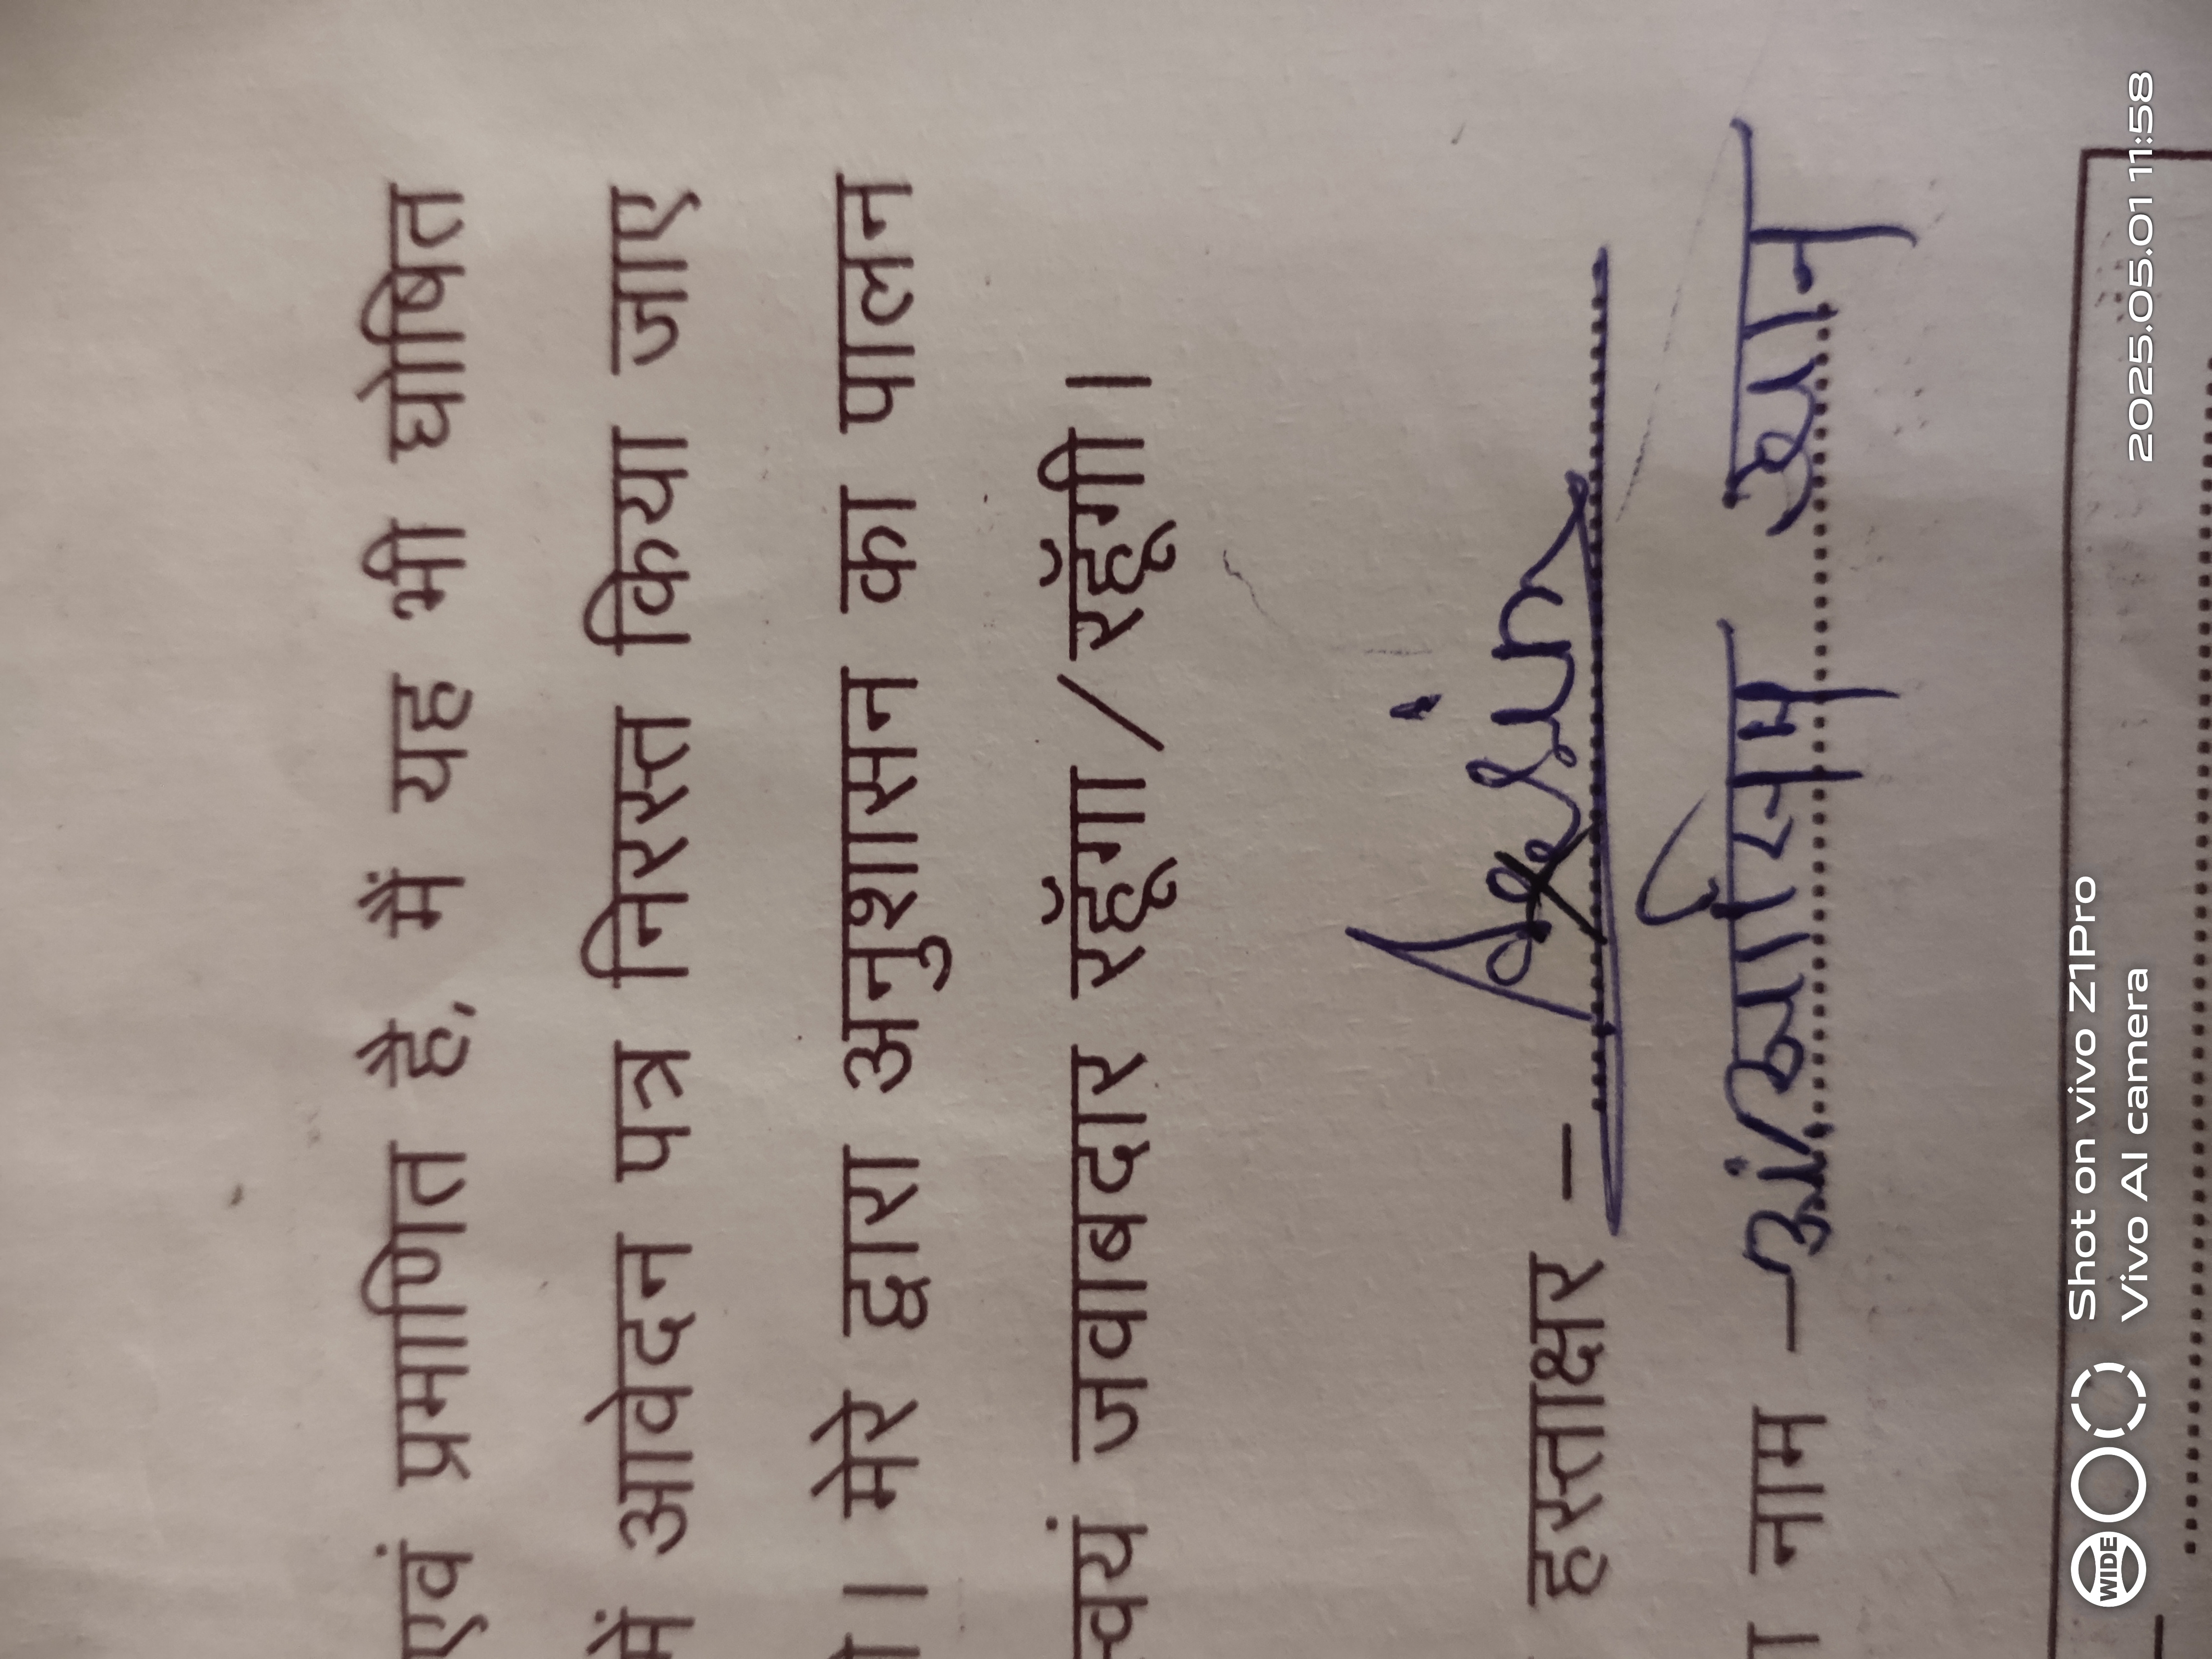 एवं प्रमाणित है, मैं यह भी घोषित
में आवेदन पत्र निरस्त किया जाए
। मेरे द्वारा अनुशासन का पालन
जवाबदार रहूँगा / रहूँगी ।
हस्ताक्षर –
नाम – खान
Shot on vivo Z1Pro
Vivo AI camera
WIDE
2025.05.01 11:58